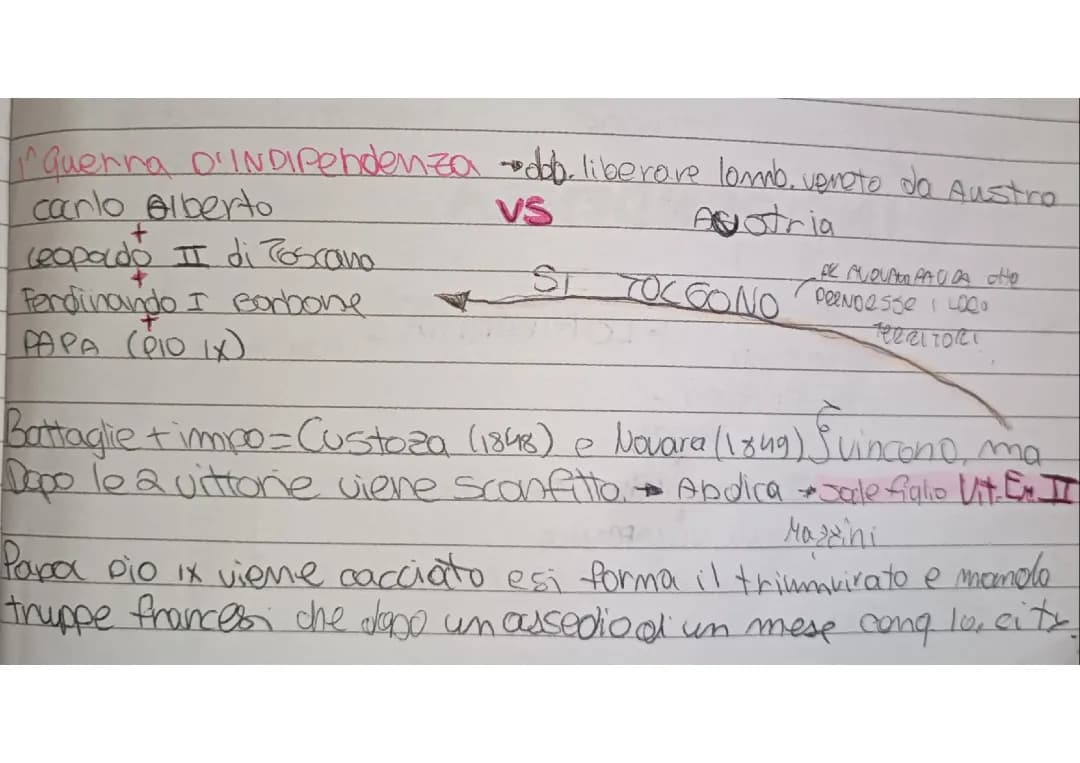 1^ Guerra D'INDIPENDENZA → dob. liberare lomb. veneto da Austro
Carlo Alberto VS Austria
+
Leopoldo II di Toscana
+
Ferdinando I Borbone
+
PAPA (PIO IX)
SI TOLGONO
PRENDESSE I LORO
TERRITORI
Battaglie + impo = Custoza (1848) e Novara (1849) vincono, ma
Dopo le 2 vittorie viene sconfitto. → Abdica → sale figlio Vit. Em. II
Mazzini
Papa Pio IX viene cacciato e si forma il triumvirato e manda
truppe francesi che dopo un assedio di un mese conq la città.